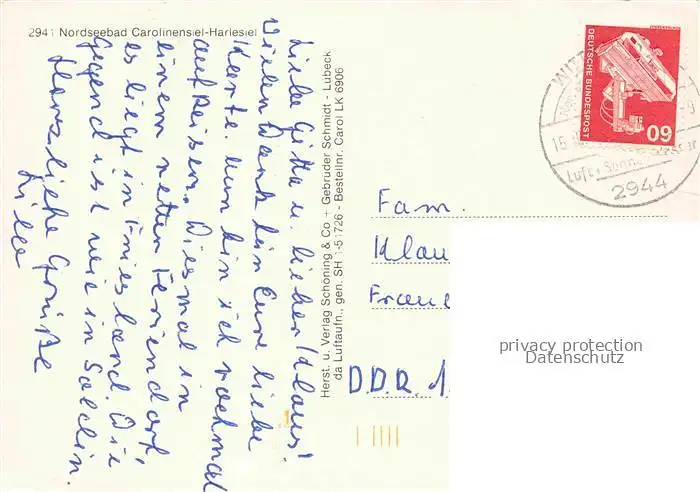 2941 Nordseebad Carolinensiel-Harlesiel
Liebe Gitta u. lieber Klaus!
Vielen Dank für Eure liebe
Karte. Nun bin ich nochmal
auf Reisen. Diesmal in
einem netten Feriendorf,
es liegt in Friesland. Die
Gegend ist wie in
Herzliche Grüße
Herst. u. Verlag Schöning & Co + Gebrüder Schmidt - Lübeck
da Luftaufn., gen. SH 1-51726 - Bestellnr. Carol LK 6906
DEUTSCHE BUNDESPOST
60
WITT
15
Luft
2944
Fam.
Klau
DDR 1
privacy protection
Datenschutz